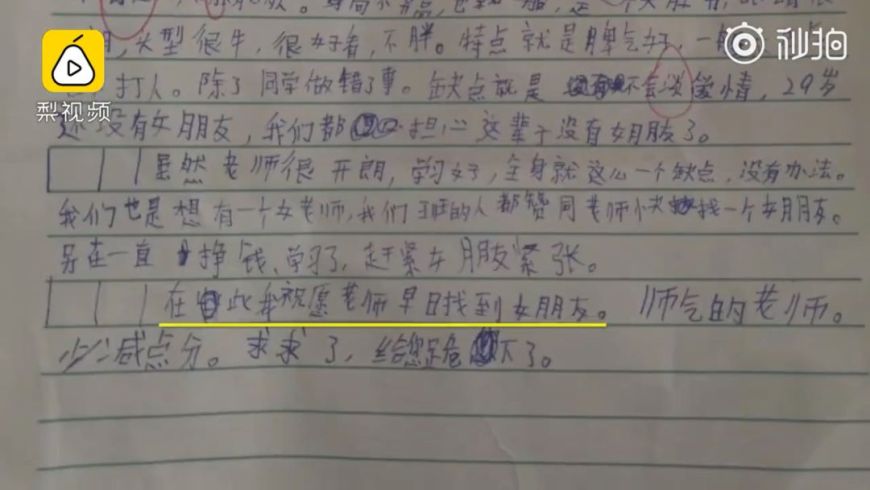 秒拍
梨视频
发型很牛,很好看,不胖。特点就是脾气好,一般
打人。除了同学做错了事。缺点就是不会谈爱情,29岁
还没有女朋友,我们都担心这辈子没有女朋友了。
虽然老师很开朗,学习好,全身就这么一个缺点,没有办法。
我们也是想有一个女老师,我们班的人都赞同老师快找一个女朋友。
另在一直挣钱、学习了,赶紧女朋友紧张。
在此我祝愿老师早日找到女朋友。帅气的老师。
少减点分。求求了,给您跪下了。